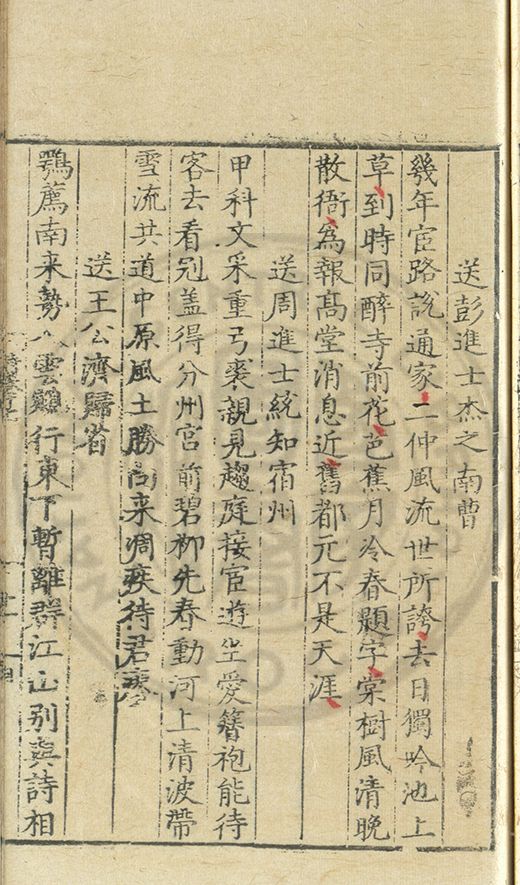 送彭進士杰之南曹
幾年宦路說通家二仲風流世所誇去日獨吟池上
草到時同醉寺前花芭蕉月冷春題字棠樹風清晚
散衙為報髙堂消息近舊都元不是天涯
送周進士統知宿州
甲科文采重弓裘親見趨庭接宦遊坐愛簪袍能待
客去看冠盖得分州宫前碧柳先春動河上清波帶
雪流共道中原風土勝向来凋瘵待君
送王公濟歸省
鶚薦南来勢入雲鴈行東下暫離群江山别興詩相